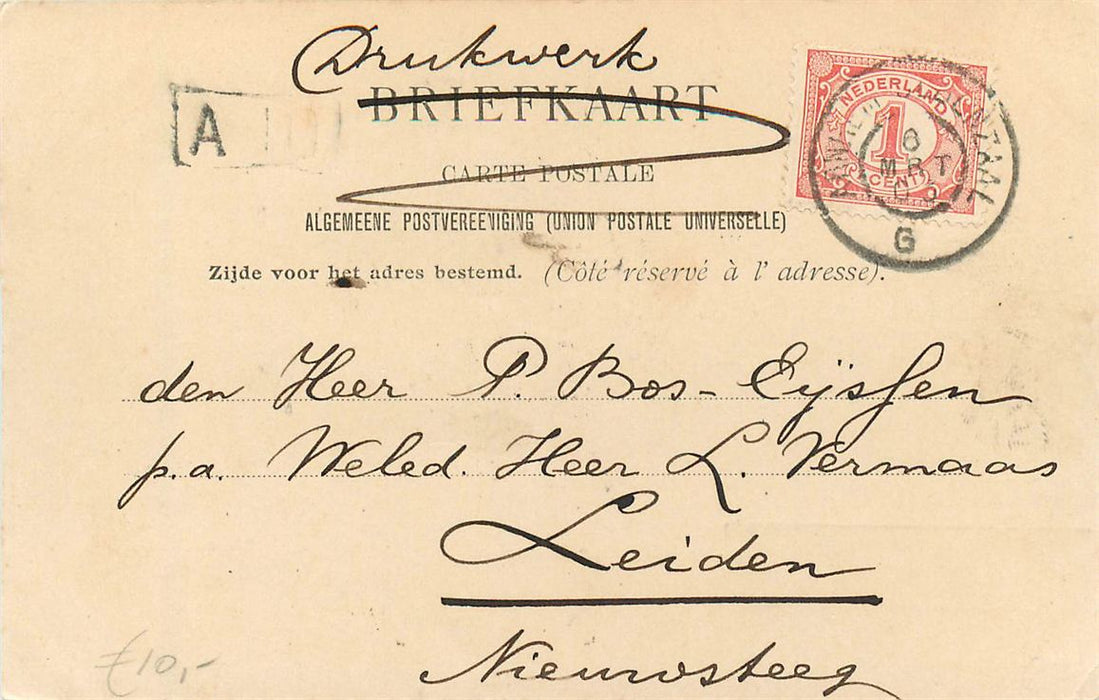 Drukwerk
BRIEFKAART
A
CARTE POSTALE
ALGEMEENE POSTVEREENIGING (UNION POSTALE UNIVERSELLE)
Zijde voor het adres bestemd. (Côté réservé à l' adresse).
NEDERLAND
1
CENT
6
MRT
G
den Heer P. Bos-Eijssen
p.a. Weled. Heer L. Vermaas
Leiden
Nieuwsteeg
€10,-